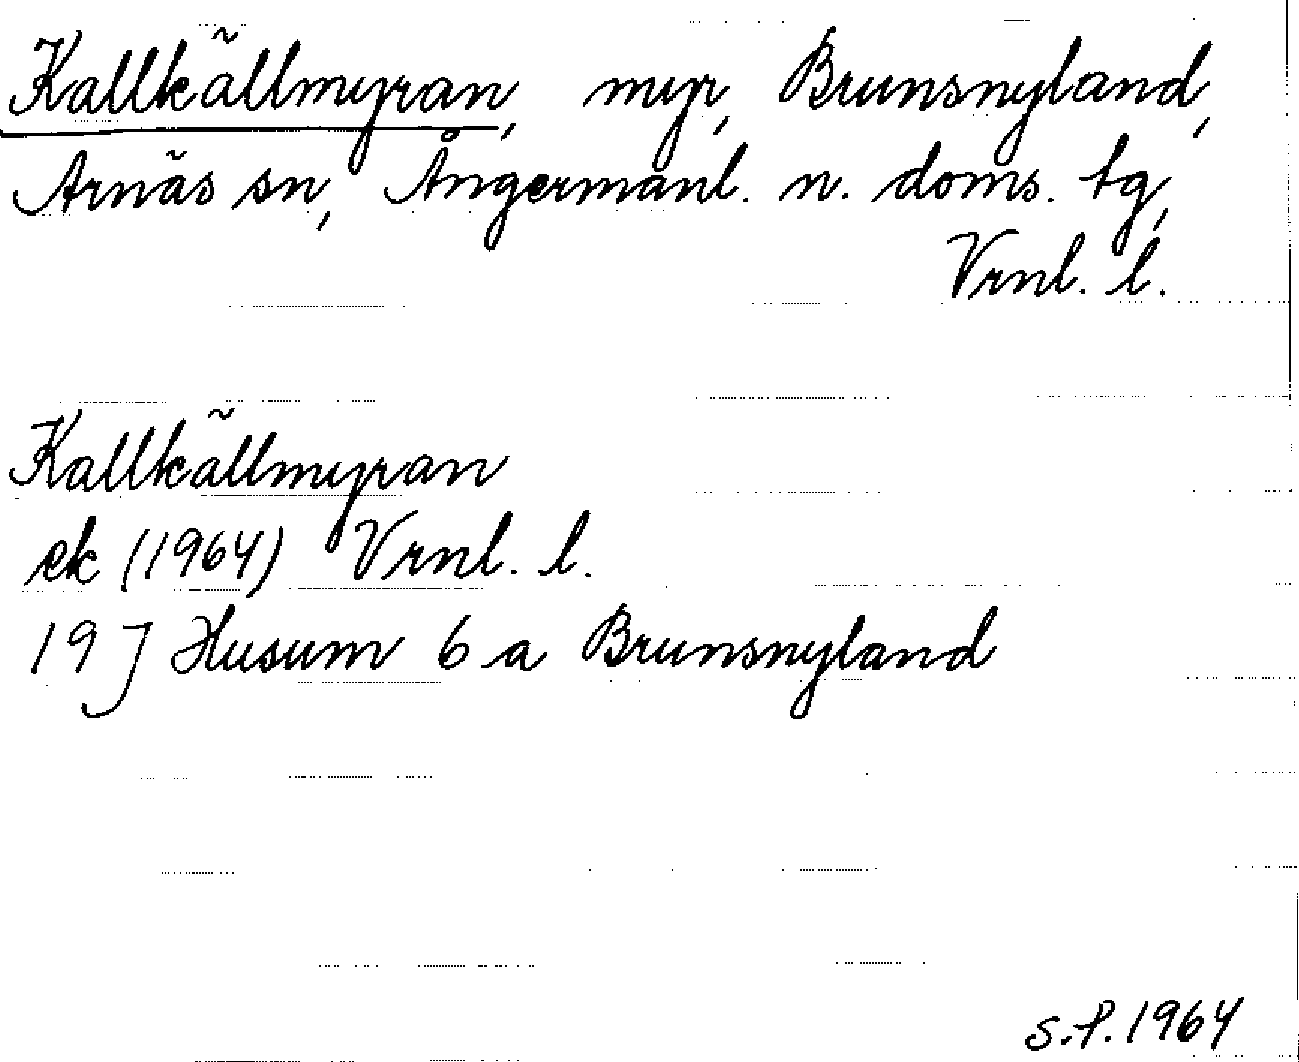 Kallkällmyran, myr, Brunsnyland,
Arnäs sn, Ångermanl. n. doms. tg,
Vrnl. l.
Kallkällmyran
ek (1964) Vrnl. l.
19 J Husum 6 a Brunsnyland
S.P. 1964